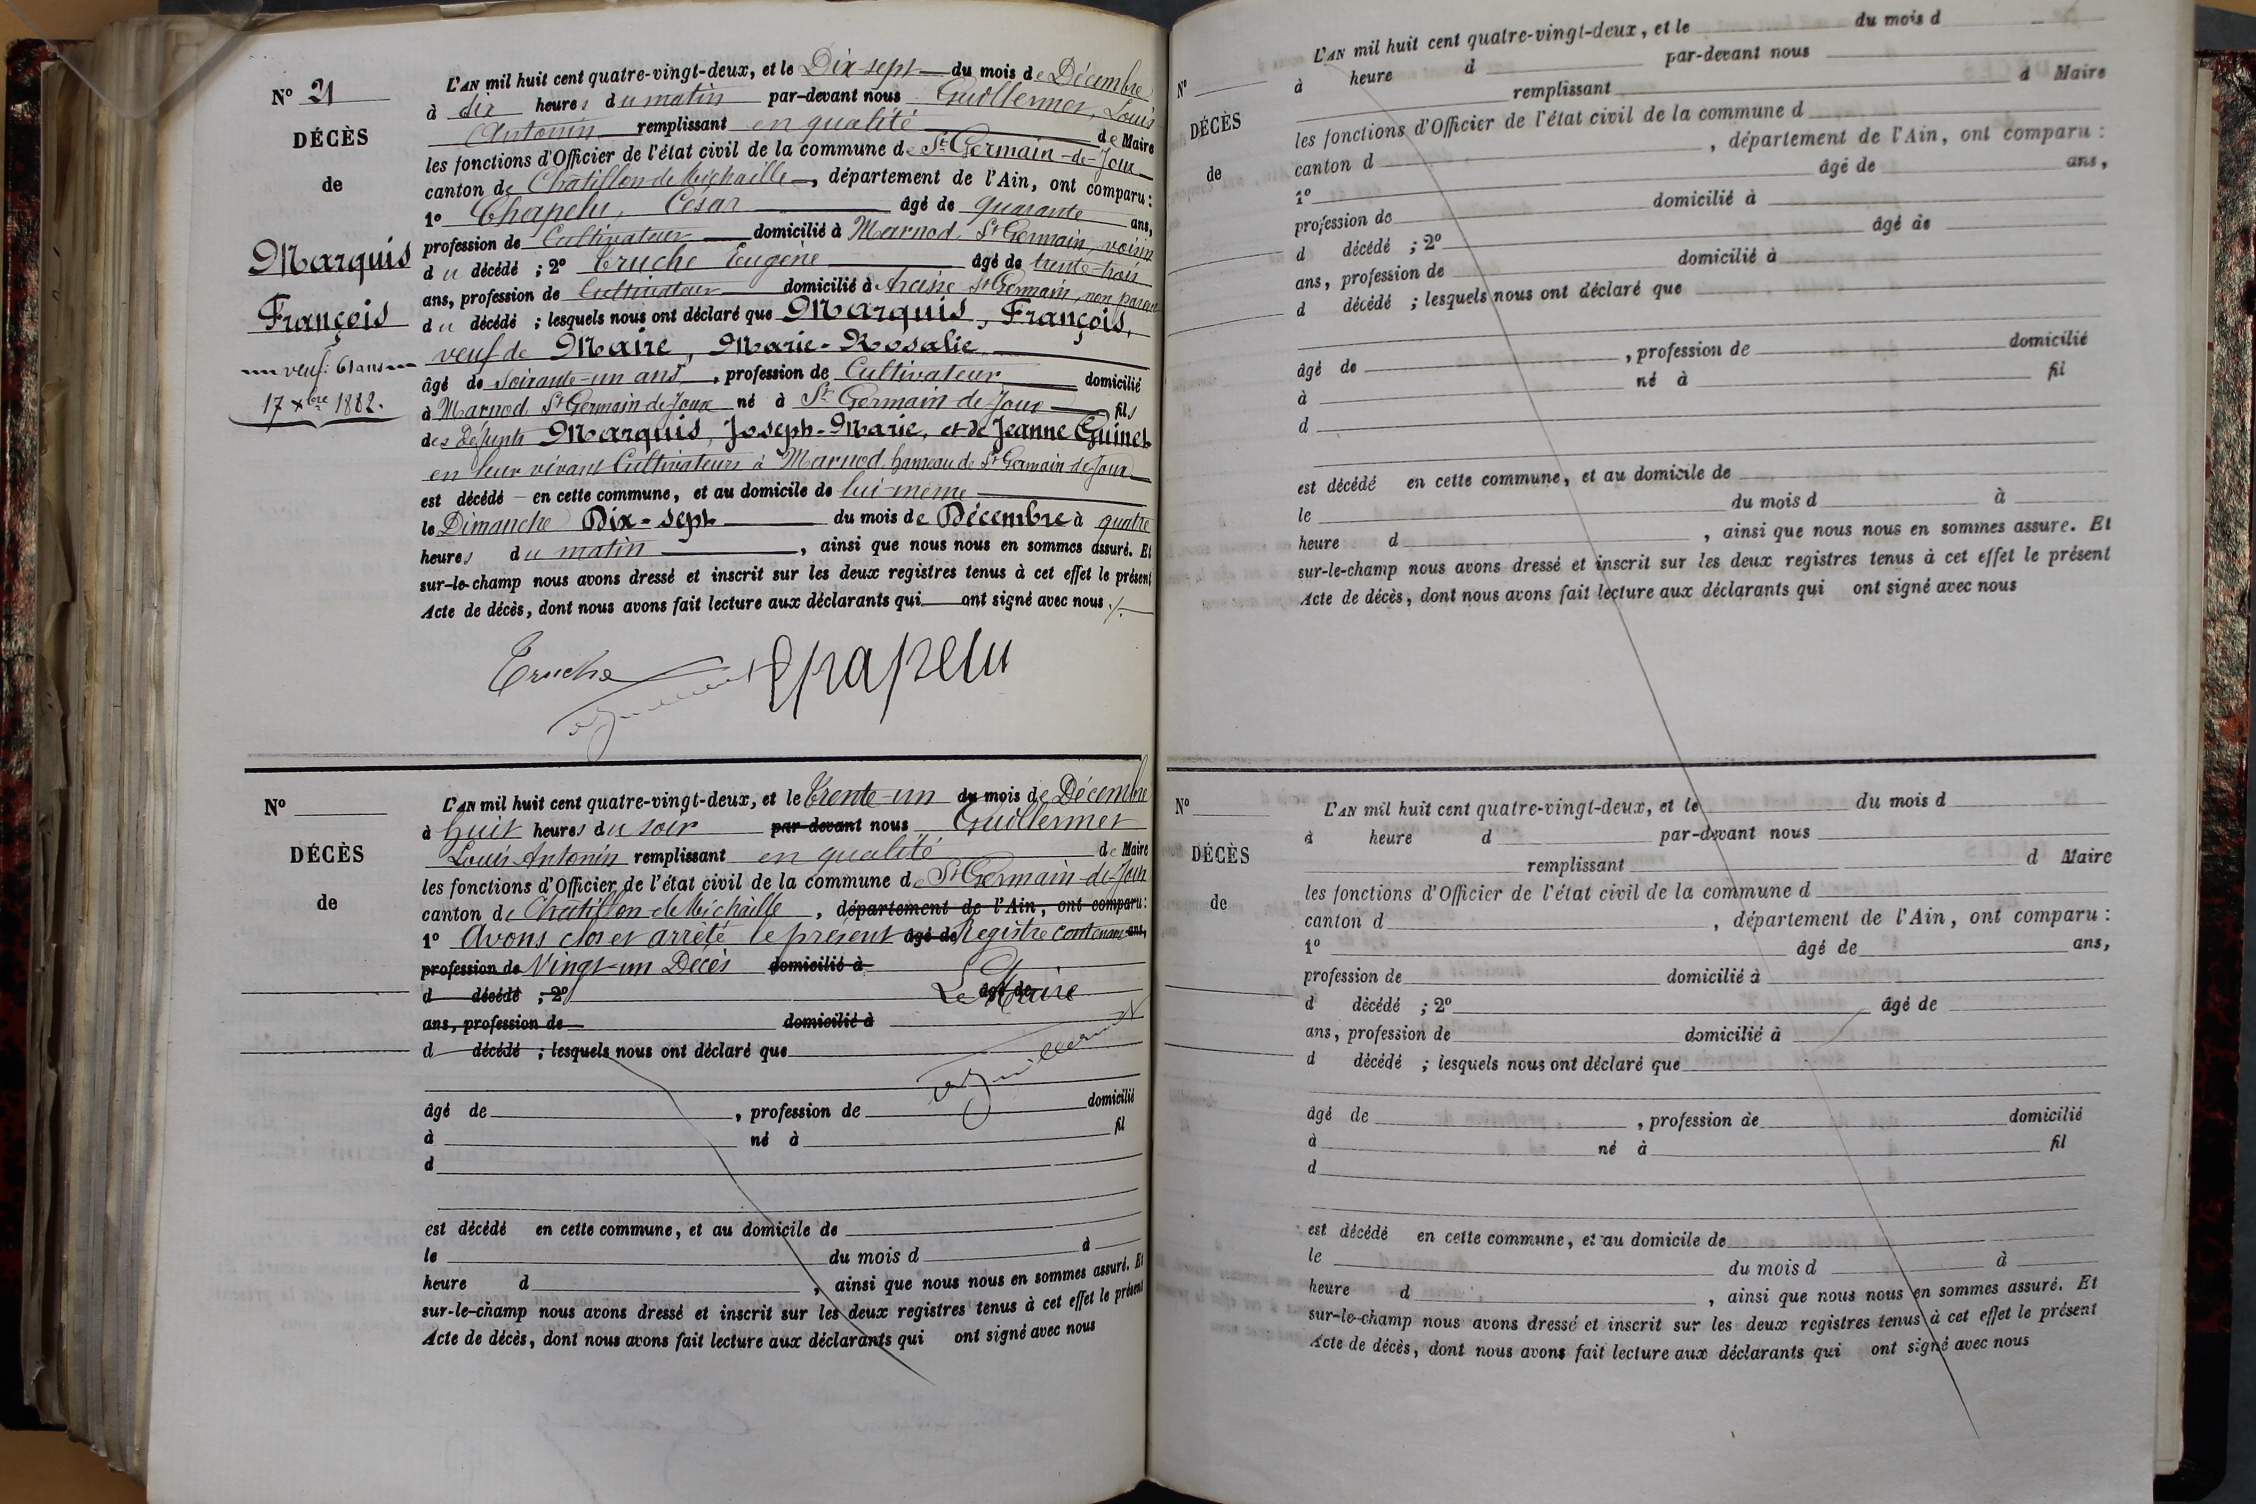 N° 21
DÉCÈS
de
Marquis
François
veuf: 61 ans
17 Xbre 1882.
L'AN mil huit cent quatre-vingt-deux, et le Dix-sept du mois de Décembre
à dix heures du matin par-devant nous Guillermet, Louis
Antonin remplissant en qualité de Maire
les fonctions d'Officier de l'état civil de la commune de St Germain-de-Joux
canton de Châtillon de Michaille, département de l'Ain, ont comparu :
1° Chapelu, César âgé de quarante ans,
profession de Cultivateur domicilié à Marnod, St Germain, voisin
du décédé ; 2° Truche Eugène âgé de trente-trois
ans, profession de Cultivateur domicilié à St Germain, non parent
du décédé ; lesquels nous ont déclaré que Marquis, François,
veuf de Maire, Marie-Rosalie
âgé de soixante-un ans, profession de Cultivateur domicilié
à Marnod St Germain de Joux né à St Germain de Joux fils
des défunts Marquis, Joseph-Marie, et de Jeanne Guinet
en leur vivant Cultivateurs à Marnod, hameau de St Germain de Joux
est décédé en cette commune, et au domicile de lui-même
le Dimanche Dix-sept du mois de Décembre à quatre
heures du matin, ainsi que nous nous en sommes assuré. Et
sur-le-champ nous avons dressé et inscrit sur les deux registres tenus à cet effet le présent
Acte de décès, dont nous avons fait lecture aux déclarants qui ont signé avec nous ./.
Truche Chapelu
Guillermet
N°
DÉCÈS
de
L'AN mil huit cent quatre-vingt-deux, et le Trente-un du mois de Décembre
à huit heures du soir par-devant nous Guillermet
Louis Antonin remplissant en qualité de Maire
les fonctions d'Officier de l'état civil de la commune de St Germain-de-Joux
canton de Châtillon de Michaille, département de l'Ain, ont comparu :
1° Avons clos et arrêté le présent âgé de Registre contenant ans,
profession de Vingt-un Décès domicilié à
d décédé ; 2° âgé de Le Maire
ans, profession de domicilié à
d décédé ; lesquels nous ont déclaré que
Guillermet
âgé de , profession de domicilié
à né à fil
d
est décédé en cette commune, et au domicile de
le du mois d à
heure d , ainsi que nous nous en sommes assuré. Et
sur-le-champ nous avons dressé et inscrit sur les deux registres tenus à cet effet le présent
Acte de décès, dont nous avons fait lecture aux déclarants qui ont signé avec nous
N°
DÉCÈS
de
L'AN mil huit cent quatre-vingt-deux, et le du mois d
à heure d par-devant nous
remplissant d Maire
les fonctions d'Officier de l'état civil de la commune d
canton d , département de l'Ain, ont comparu :
1° âgé de ans,
profession de domicilié à
d décédé ; 2° âgé de
ans, profession de domicilié à
d décédé ; lesquels nous ont déclaré que
âgé de , profession de domicilié
à né à fil
d
est décédé en cette commune, et au domicile de
le du mois d à
heure d , ainsi que nous nous en sommes assure. Et
sur-le-champ nous avons dressé et inscrit sur les deux registres tenus à cet effet le présent
Acte de décès, dont nous avons fait lecture aux déclarants qui ont signé avec nous
N°
DÉCÈS
de
L'AN mil huit cent quatre-vingt-deux, et le du mois d
à heure d par-devant nous
remplissant d Maire
les fonctions d'Officier de l'état civil de la commune d
canton d , département de l'Ain, ont comparu :
1° âgé de ans,
profession de domicilié à
d décédé ; 2° âgé de
ans, profession de domicilié à
d décédé ; lesquels nous ont déclaré que
âgé de , profession de domicilié
à né à fil
d
est décédé en cette commune, et au domicile de
le du mois d à
heure d , ainsi que nous nous en sommes assuré. Et
sur-le-champ nous avons dressé et inscrit sur les deux registres tenus à cet effet le présent
Acte de décès, dont nous avons fait lecture aux déclarants qui ont signé avec nous